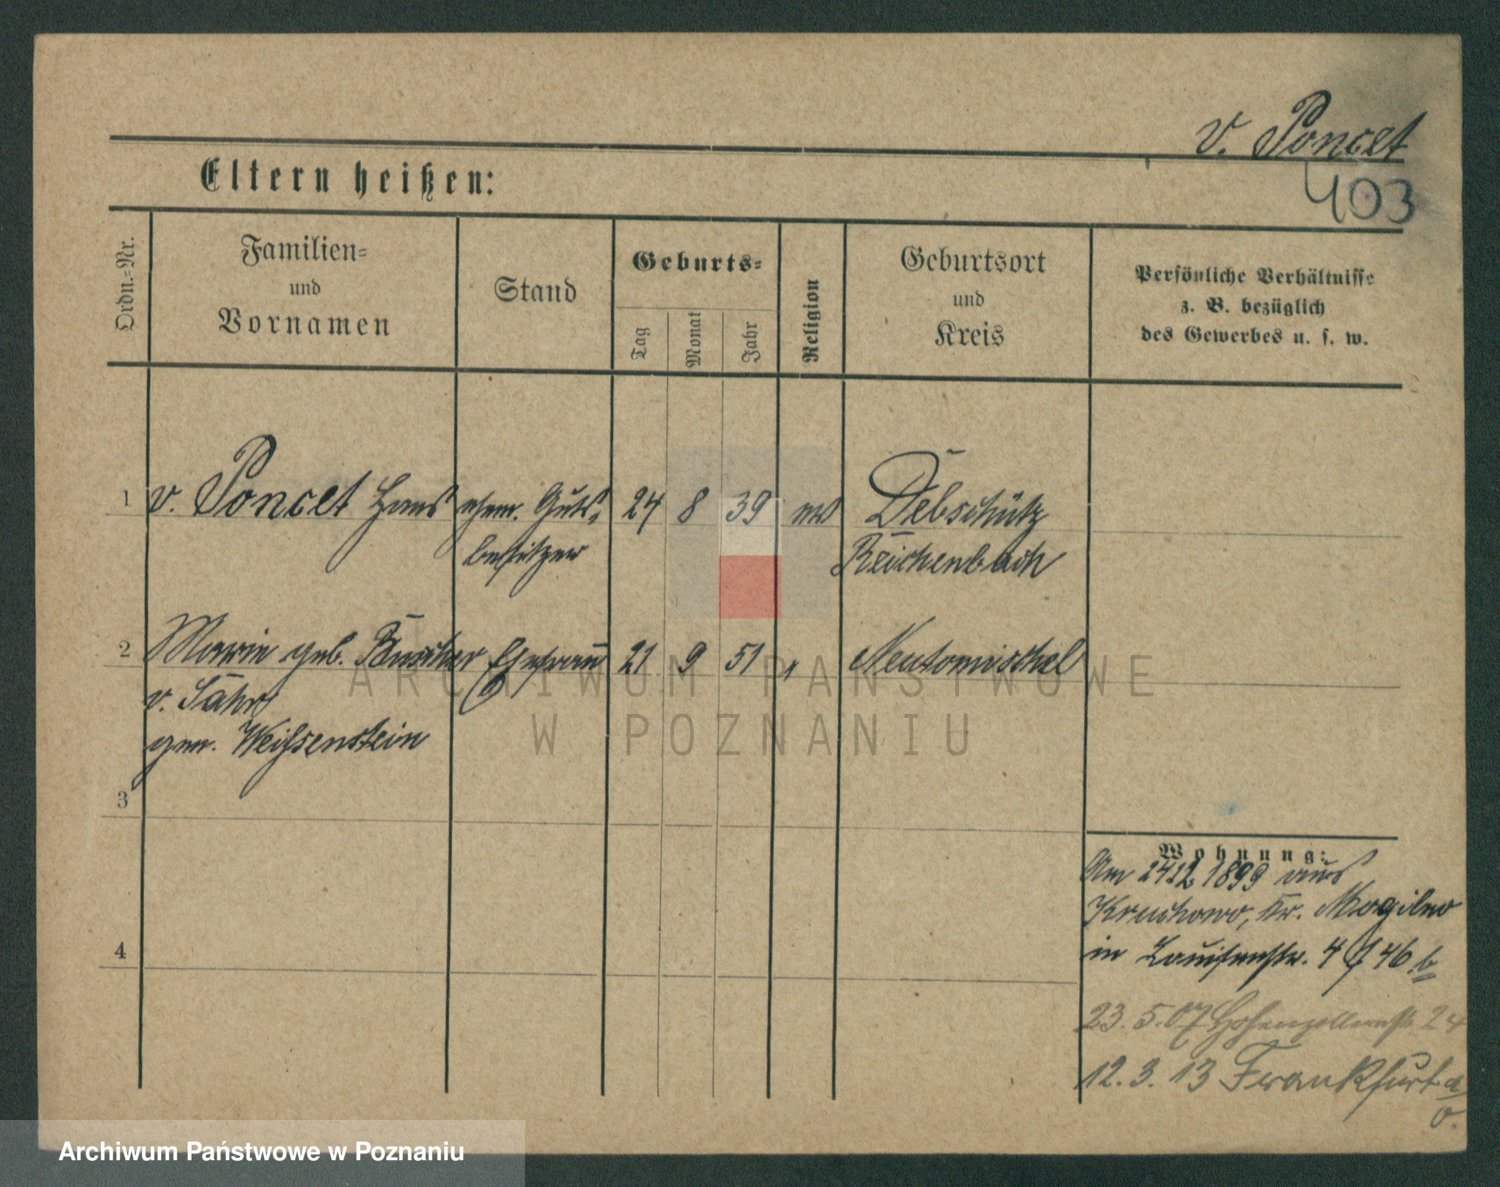 v. Poncet
403
Eltern heißen:
Ordn.-Nr.
Familien-
und
Vornamen
Stand
Geburts-
Tag
Monat
Jahr
Religion
Geburtsort
und
Kreis
Persönliche Verhältnisse
z. B. bezüglich
des Gewerbes u. s. w.
1 v. Poncet Hans ehem. Guts- 24 8 39 ev Debschütz
besitzer Reichenbach
2 Marie geb. Ehefrau 21 9 51 " Neutomischel
v.
gen. Weißenstein
3
4
Wohnung:
Am 24 12 1899 aus
Kruchowo, Kr. Mogilno
in Louisenstr. 4 46 b
23. 5. 07 Hohenzollernstr. 24
12. 3. 13 Frankfurt a/
O.
ARCHIWUM PAŃSTWOWE
W POZNANIU
Archiwum Państwowe w Poznaniu